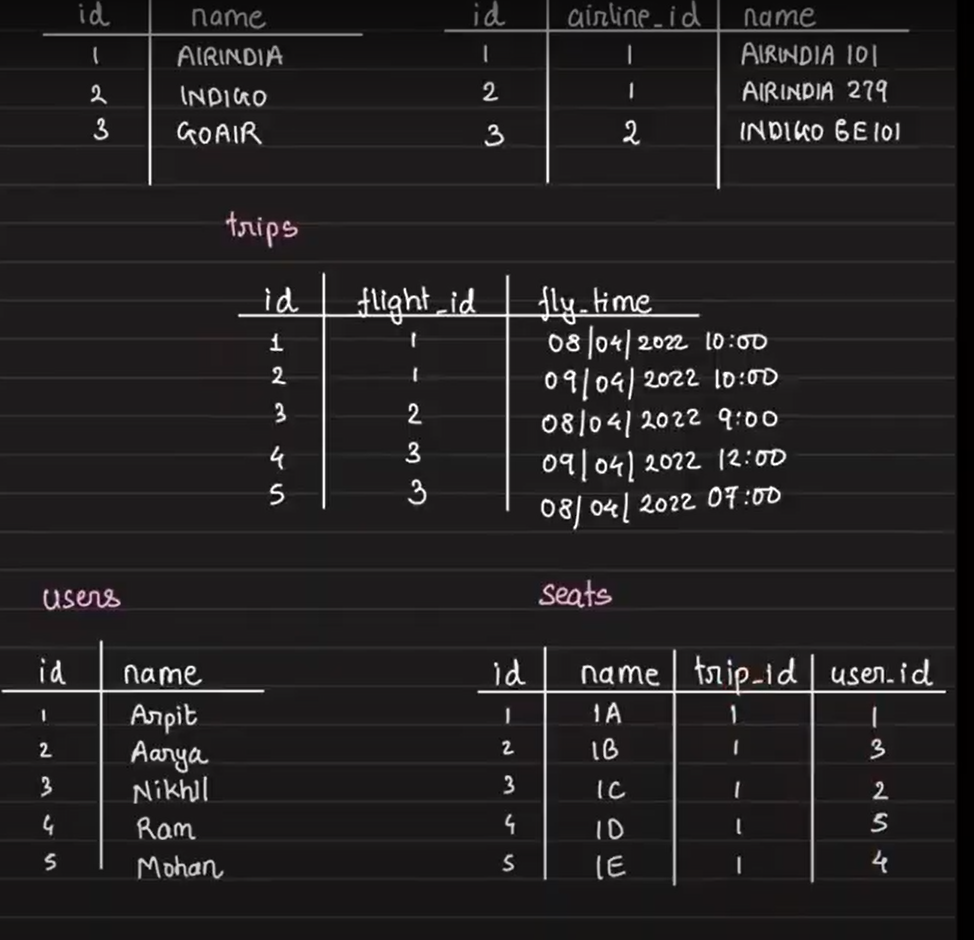 id name
1 AIRINDIA
2 INDIGO
3 GOAIR
id airline_id name
1 1 AIRINDIA 101
2 1 AIRINDIA 279
3 2 INDIGO 6E101
trips
id flight_id fly_time
1 1 08/04/2022 10:00
2 1 09/04/2022 10:00
3 2 08/04/2022 9:00
4 3 09/04/2022 12:00
5 3 08/04/2022 07:00
users
id name
1 Arpit
2 Aarya
3 Nikhil
4 Ram
5 Mohan
seats
id name trip_id user_id
1 1A 1 1
2 1B 1 3
3 1C 1 2
4 1D 1 5
5 1E 1 4